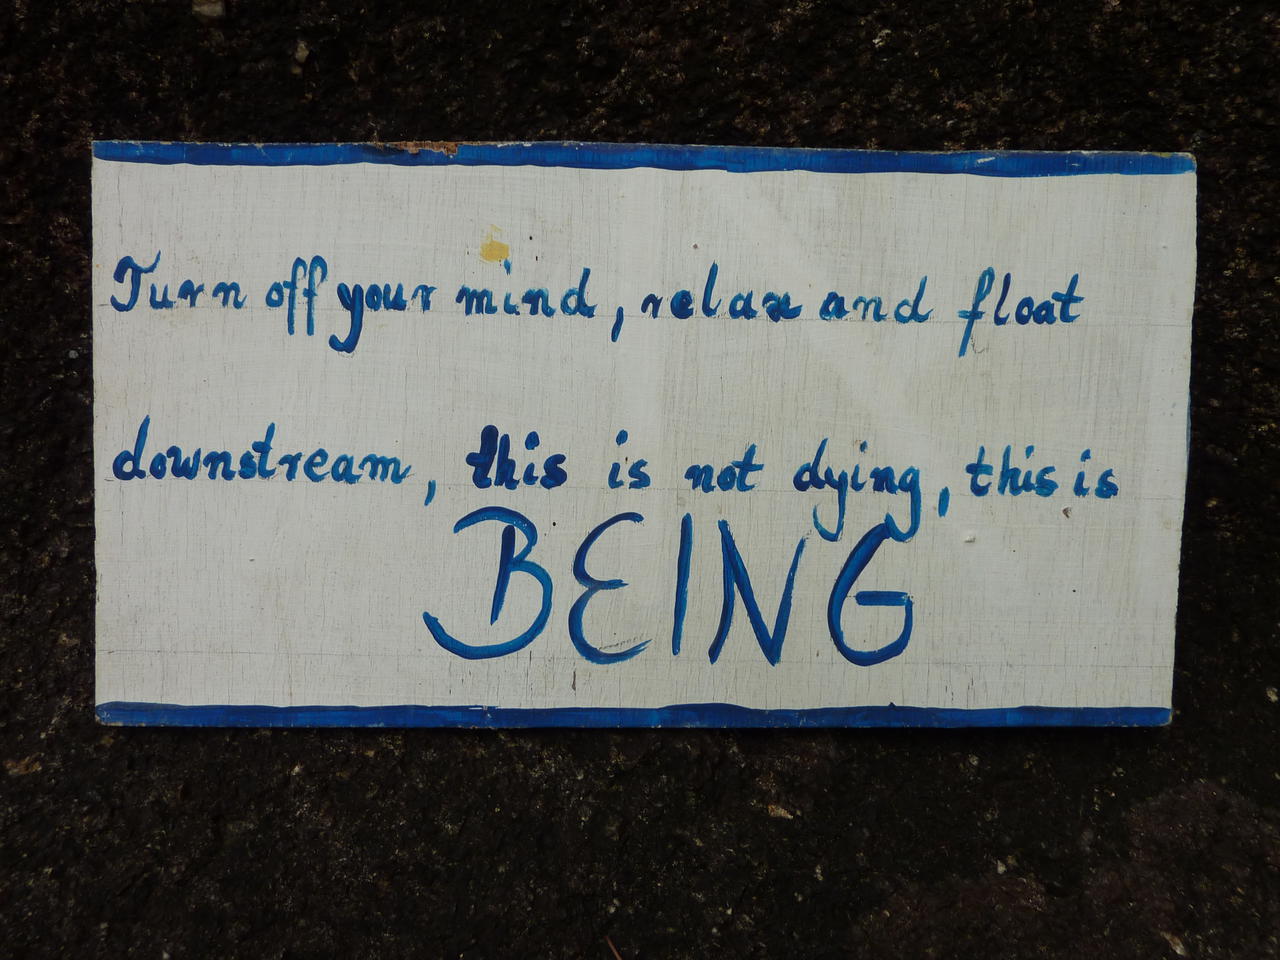 Turn off your mind, relax and float
downstream, this is not dying, this is
BEING